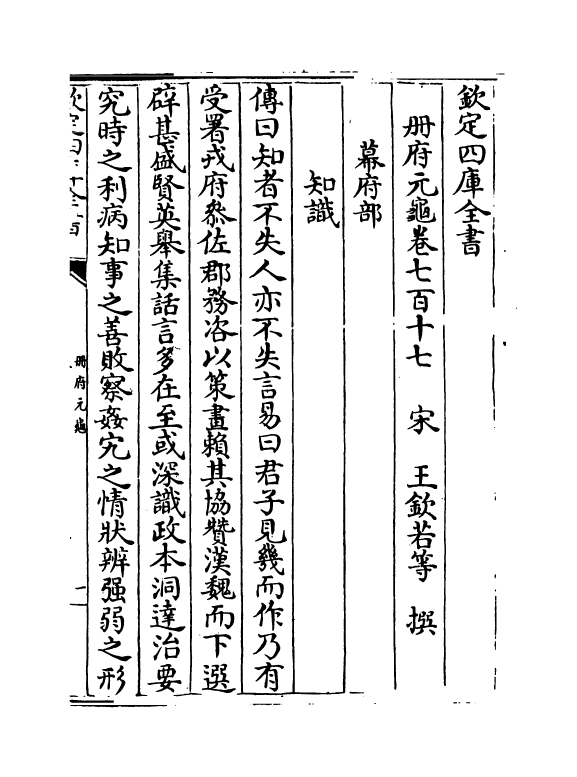 欽定四庫全書
冊府元龜卷七百十七　宋　王欽若等　撰
幕府部
知識
傳曰知者不失人亦不失言易曰君子見幾而作乃有
受署戎府叅佐郡務咨以策畫賴其協贊漢魏而下選
辟甚盛賢英舉集話言多在至或深識政本洞達治要
究時之利病知事之善敗察姦宄之情狀辨强弱之形
欽定四庫全書
冊府元龜